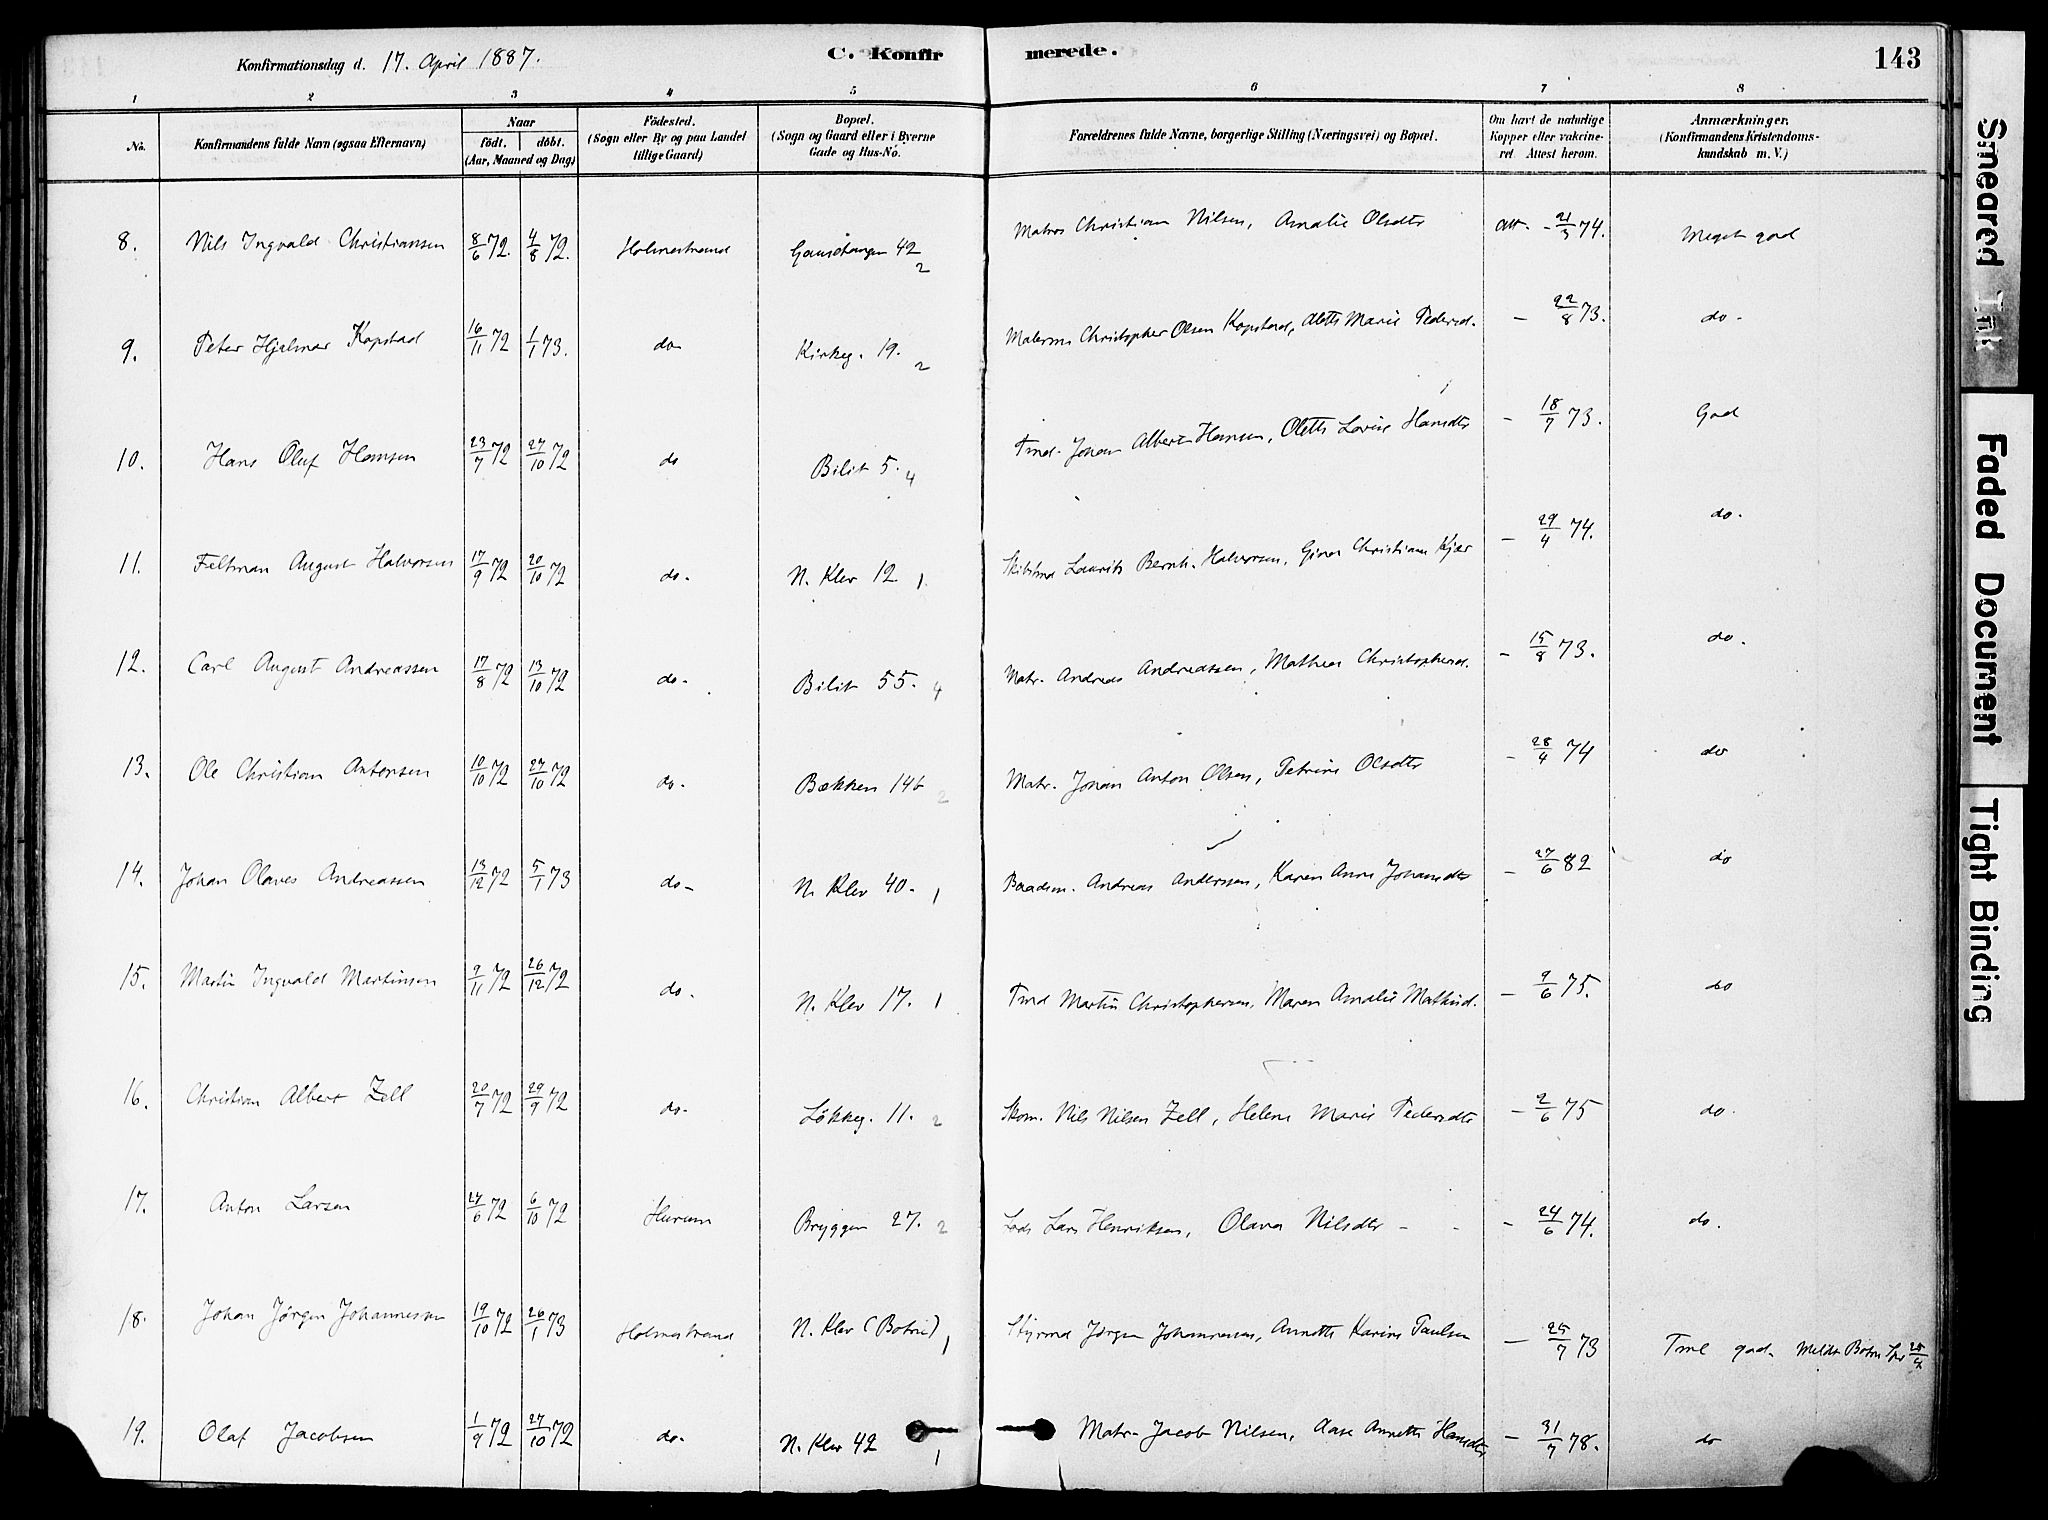 Konfirmationsdag d. 17. April 1887. C. Konfirmerede. 143
1 2 3 4 5 6 7 8
No. Konfirmandens fulde Navn (ogsaa Efternavn) Naar födt. döbt. (Aar, Maaned og Dag) Födested. (Sogn eller By og paa Landet tillige Gaard) Bopæl. (Sogn og Gaard eller i Byerne Gade og Hus-No. Forældrenes fulde Navne, borgerlige Stilling (Næringsvei) og Bopæl. Om havt de naturlige Kopper eller vakcineret. Attest herom. Anmærkninger. (Konfirmandens Kristendomskundskab m. V.)
8. Nils Ingvald Christiansen 8/6 72. 4/8 72. Holmestrand 42 2 Matros Christian Nilsen, Amalie Olsdtr att. - 21/3 74. Meget god
9. Peter Hjalmar Kopstad 16/11 72 1/1 73. do Kirkeg. 19. 2 Christopher Olsen Kopstad, Alette Marie Pedersd. - 22/8 73. do.
10. Hans Oluf Hansen 23/7 72 27/10 72 do Bilit 5. 4 Tmd. Johan Albert Hansen, Olette Lovise Hansdtr - 18/7 73. God
11. Feltman August Halvorsen 17/9 72 20/10 72 do. N. Klev 12 1. Laurits Bernh. Halvorsen, Christiane Kjær - 29/4 74. do.
12. Carl August Andreassen 17/8 72 13/10 72 do. Bilit 55. 4 Matr. Andreas Andreassen, Mathea Christophersd. - 15/8 73. do.
13. Ole Christian Antonsen 10/10 72 27/10 72 do. Bækken 14b 2 Matr. Johan Anton Olsen, Petrine Olsdtr - 28/4 74 do
14. Johan Olaves Andreassen 13/12 72 5/1 73 do. N. Klev 40. 1 Baadsm. Andreas Anderssen, Karen Anne Johansdtr - 27/6 82 do
15. Martin Ingvald Martinsen 9/11 72 26/12 72 do. N. Klev 17. 1 Tmd Martin Christophersen, Maren Amalie Mathisd. - 9/6 75. do
16. Christian Albert Zell 20/7 72 29/9 72 do. Løkkeg. 11. 2 Skom. Nils Nilsen Zell, Helene Marie Pedersdtr - 2/6 75 do.
17. Anton Larsen 27/6 72 6/10 72 Hurum Bryggen 27. 2 Lods Lars Henriksen, Olava Nilsdtr - - - 24/6 74. do.
18. Johan Jørgen Johannessen 19/10 72 26/1 73 Holmestrand N. Klev (Botne) 1 Styrmd Jørgen Johannesen, Annette Karine Paulsen - 25/7 73 Tml god. Meldt Botne Spr 25/4
19. Olaf Jacobsen 1/9 72 27/10 72 do. N. Klev 42 1 Matr. Jacob Nilsen, Aase Annette Hansdtr - 31/7 78. do
Smeared Ink
Faded Document
Tight Binding